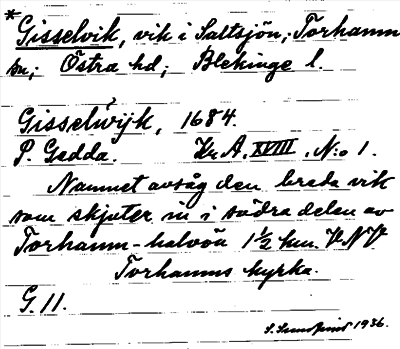 * Gisselvik, vik i Saltsjön; Torhamn
sn; Östra hd; Blekinge l.
Gisselwijk, 1684.
P. Gedda. Kr. A. XVIII. N:o 1.
Namnet avsåg den breda vik
som skjuter in i södra delen av
Torhamn-halvön 1½ km. VNV
Torhamns kyrka.
G. 11.
1936.